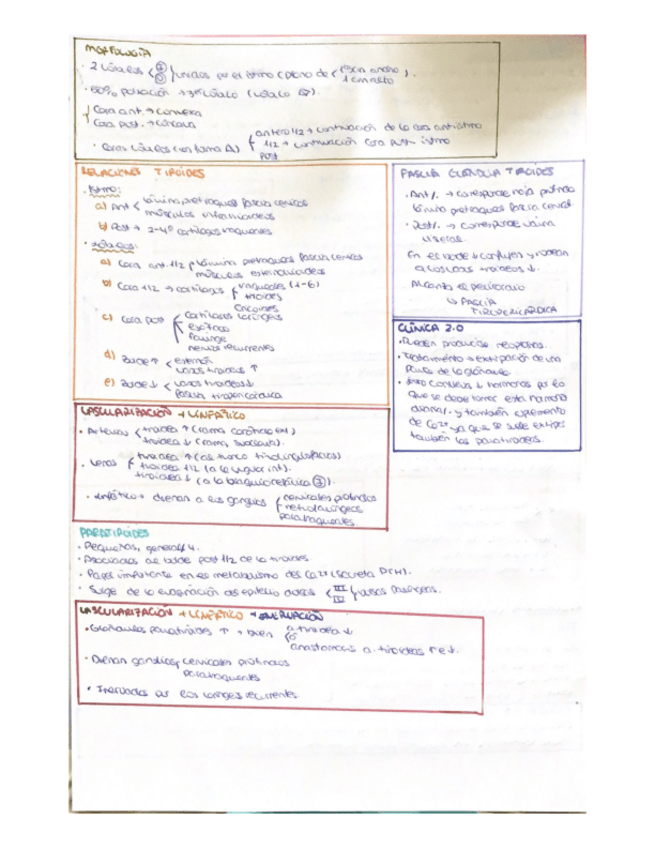 MORFOLOGÍA
· 2 lóbulos unidos por el istmo (plano de 1 cm alto).
· 50% población → 3er lóbulo (lóbulo).
Cara ant. → convexa
Cara post. → cóncava
· Caras lóbulos (con forma Δ) antero 1/2 → continuación de la cara ant istmo
1/2 → continuación cara post istmo
post
RELACIONES TIROIDES
· Istmo:
a) Ant < lámina pretraqueal fascia cervical
músculos infrahioideos
b) Post → 2-4º cartílagos traqueales
· lóbulos:
a) Cara ant 1/2 lámina pretraqueal fascia cervical
músculos esternohioideos
b) Cara 1/2 → cartílagos traqueales (1-6)
tiroides
cricoides
c) Cara post cartílago laringeas
esófago
faringe
nervios recurrentes
d) Borde ↑ < externa
vasos tiroideos ↑
e) Borde ↓ < vasos tiroideos ↓
fascia tiropericárdica
FASCIA GLÁNDULA TIROIDES
· Ant/. → corresponde hoja profunda
lámina pretraqueal fascia cervical.
· Post/. → corresponde vaina
visceral.
En el borde ↓ confluyen y rodean
a los vasos tiroideos ↓.
Alcanza el pericardio
↳ FASCIA
TIROPERICÁRDICA
CLÍNICA 2.0
· Pueden producirse neoplasias.
· Tratamiento → extirpación de una
parte de la glándula.
· Esto conlleva ↓ hormonas por lo
que se debe tomar esta hormona
diaria/. y también suplemento
de Ca²⁺ ya que se suele extirpar
también las paratiroides.
VASCULARIZACIÓN + LINFÁTICO
· Arterias < tiroidea ↑ (rama carótida ext)
tiroidea ↓ (rama subclavia).
· Venas tiroidea ↑ (al tronco tirolinguofacial)
tiroidea 1/2 (a la yugular int).
tiroidea ↓ (a la braquiocefálica).
· Linfático → drenan a los ganglios cervicales profundos
retrofaríngeos
paratraqueales
PARATIROIDES
· Pequeñas, general/. 4.
· Asociadas al borde post 1/2 de la tiroides.
· Papel importante en el metabolismo del Ca²⁺ (secreta PTH).
· Surge de la evaginación del epitelio dorsal < III IV bolsas faríngeas.
VASCULARIZACIÓN + LINFÁTICO + INERVACIÓN
· Glándulas paratiroides ↑ → bien a. tiroidea ↓
o
anastomosis a. tiroideas ↑ e ↓.
· Drenan ganglios cervicales profundos
paratraqueales
· Inervadas por los laringeos recurrentes